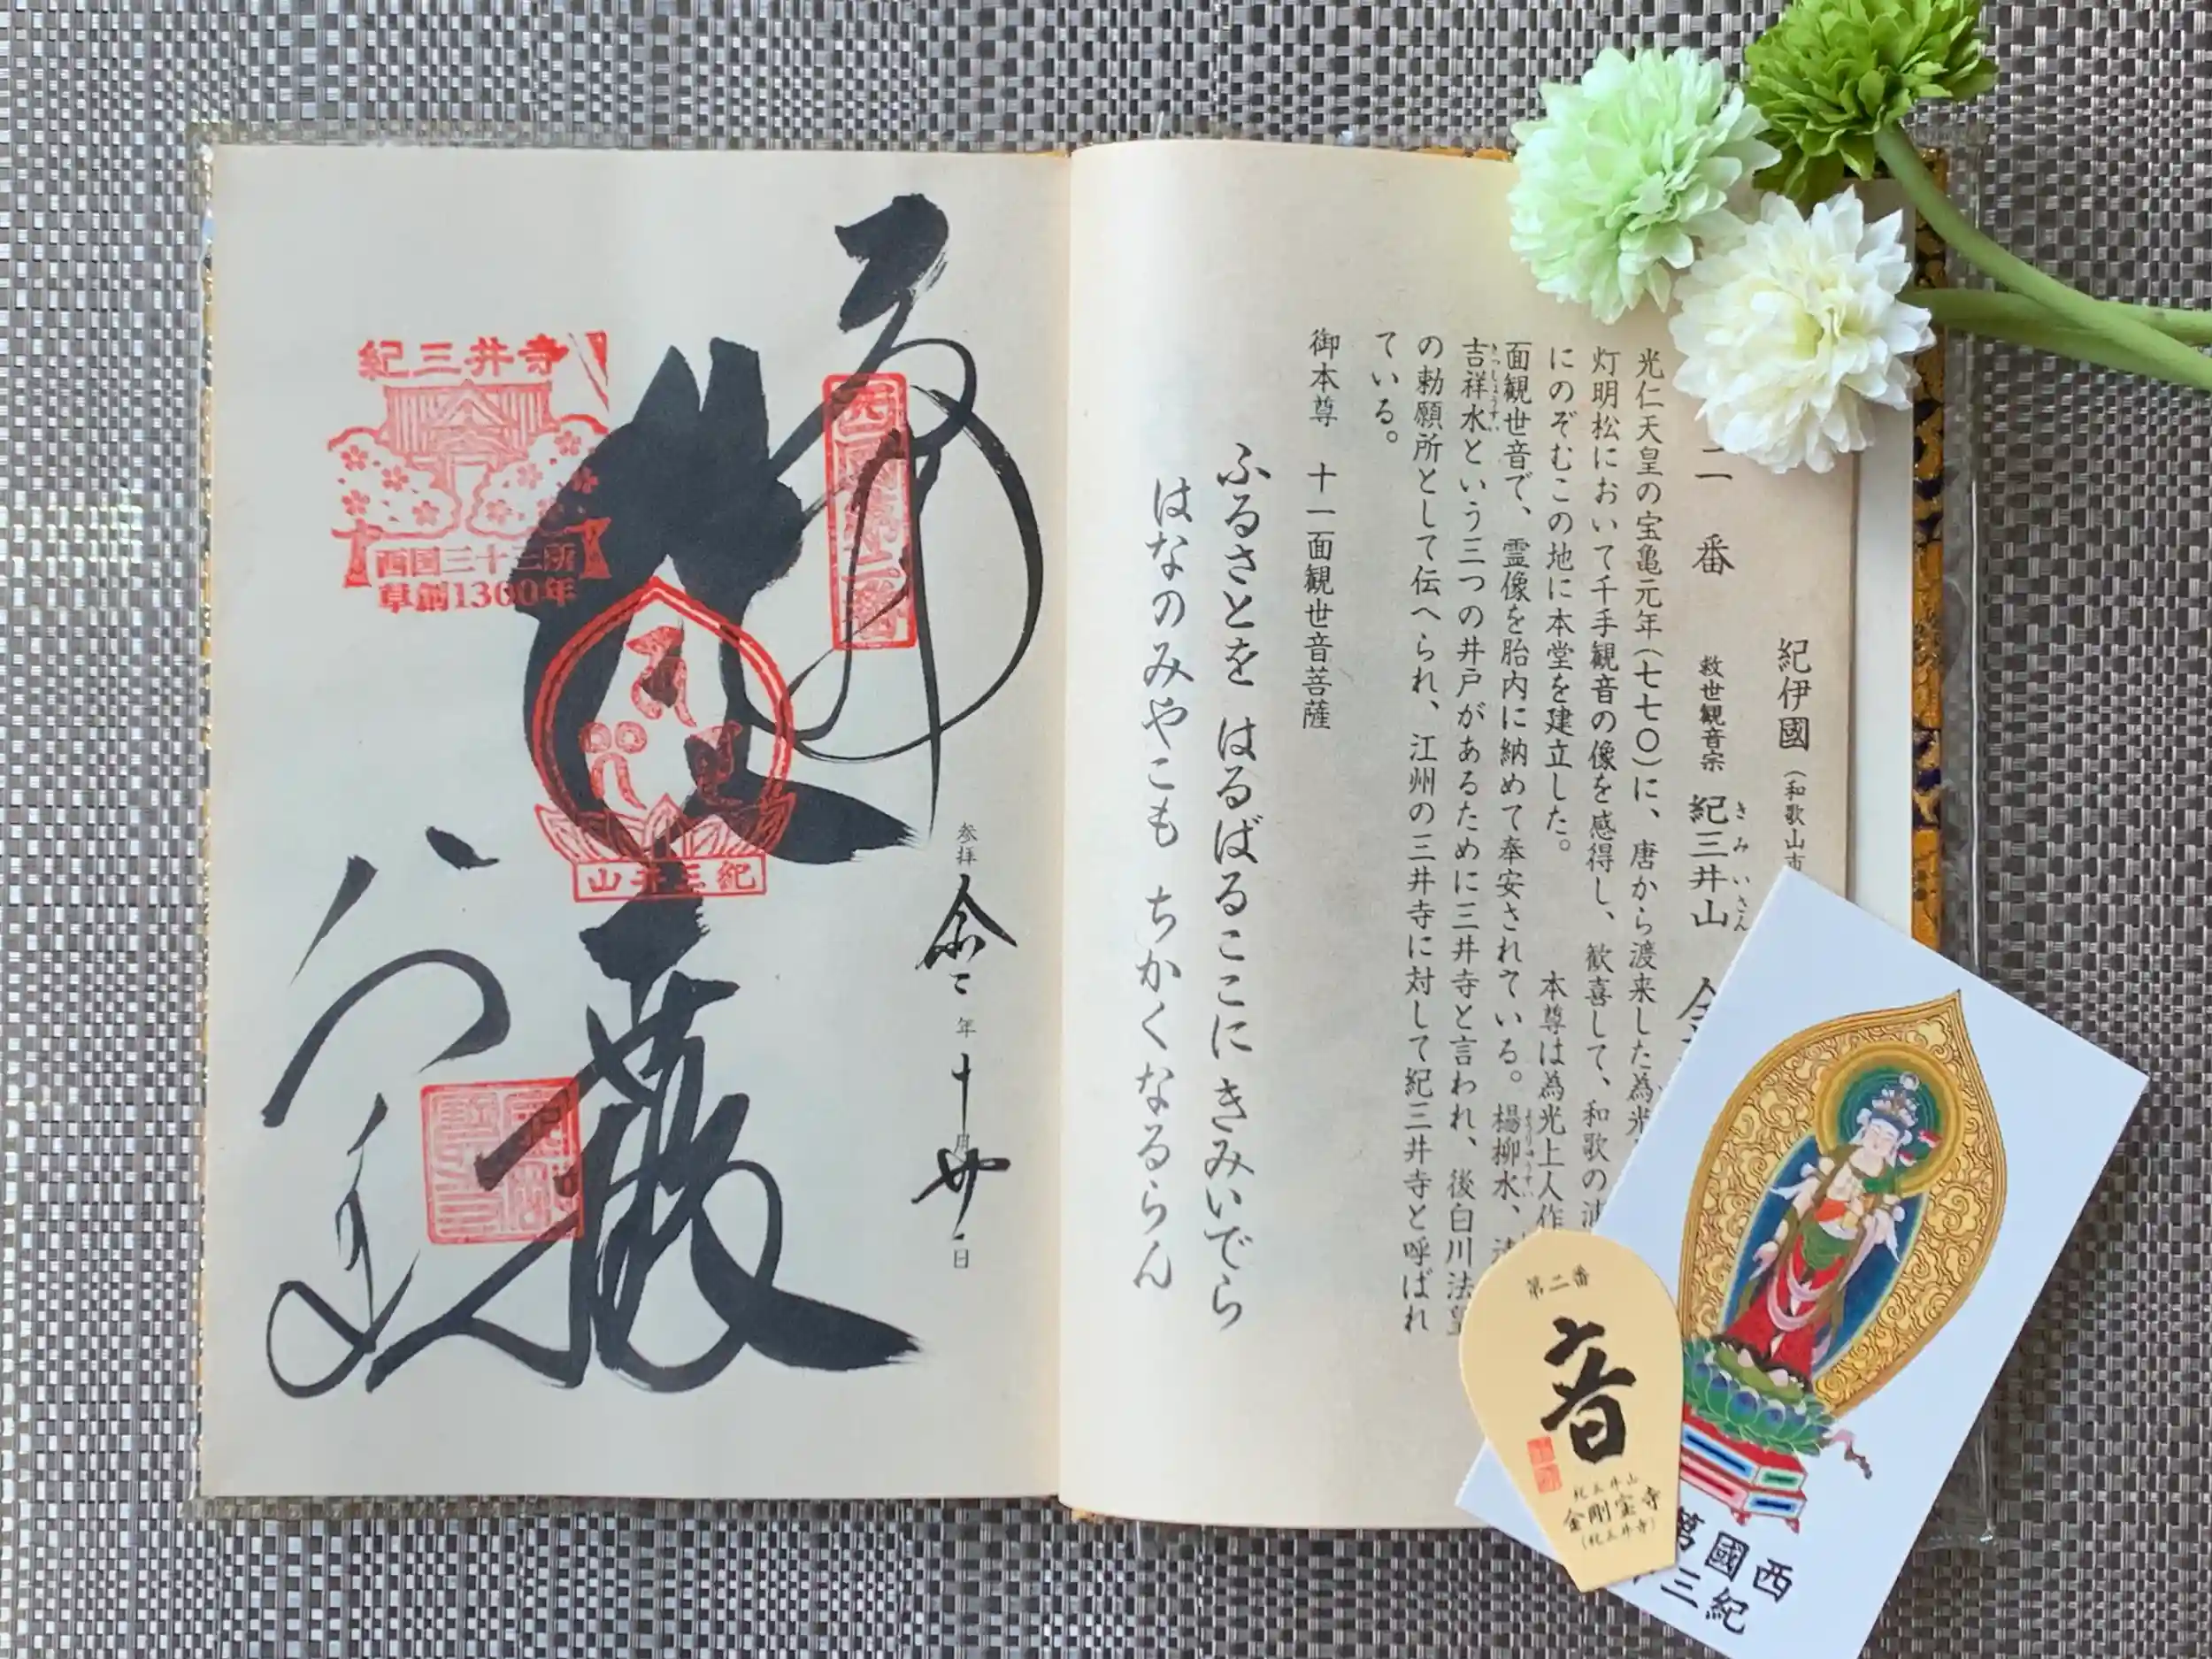 紀伊國（和歌山市
二番 救世観音宗 紀三井山
きみいさん
光仁天皇の宝亀元年（七七〇）に、唐から渡来した為光
灯明松において千手観音の像を感得し、歓喜して、和歌の浦
にのぞむこの地に本堂を建立した。 本尊は為光上人作
面観世音で、霊像を胎内に納めて奉安されている。楊柳水、
ようりゅうすい
吉祥水という三つの井戸があるために三井寺と言われ、後白川法皇
きっしょうすい
の勅願所として伝へられ、江州の三井寺に対して紀三井寺と呼ばれ
ている。
御本尊 十一面観世音菩薩
ふるさとを はるばるここに きみいでら
はなのみやこも ちかくなるらん
奉
参拝 令和二年十月廿一日
西国第二番
紀三井山
紀三井寺
西国三十三所
草創1300年
第二番
音
紀三井山
金剛宝寺
（紀三井寺）
西國第
紀三